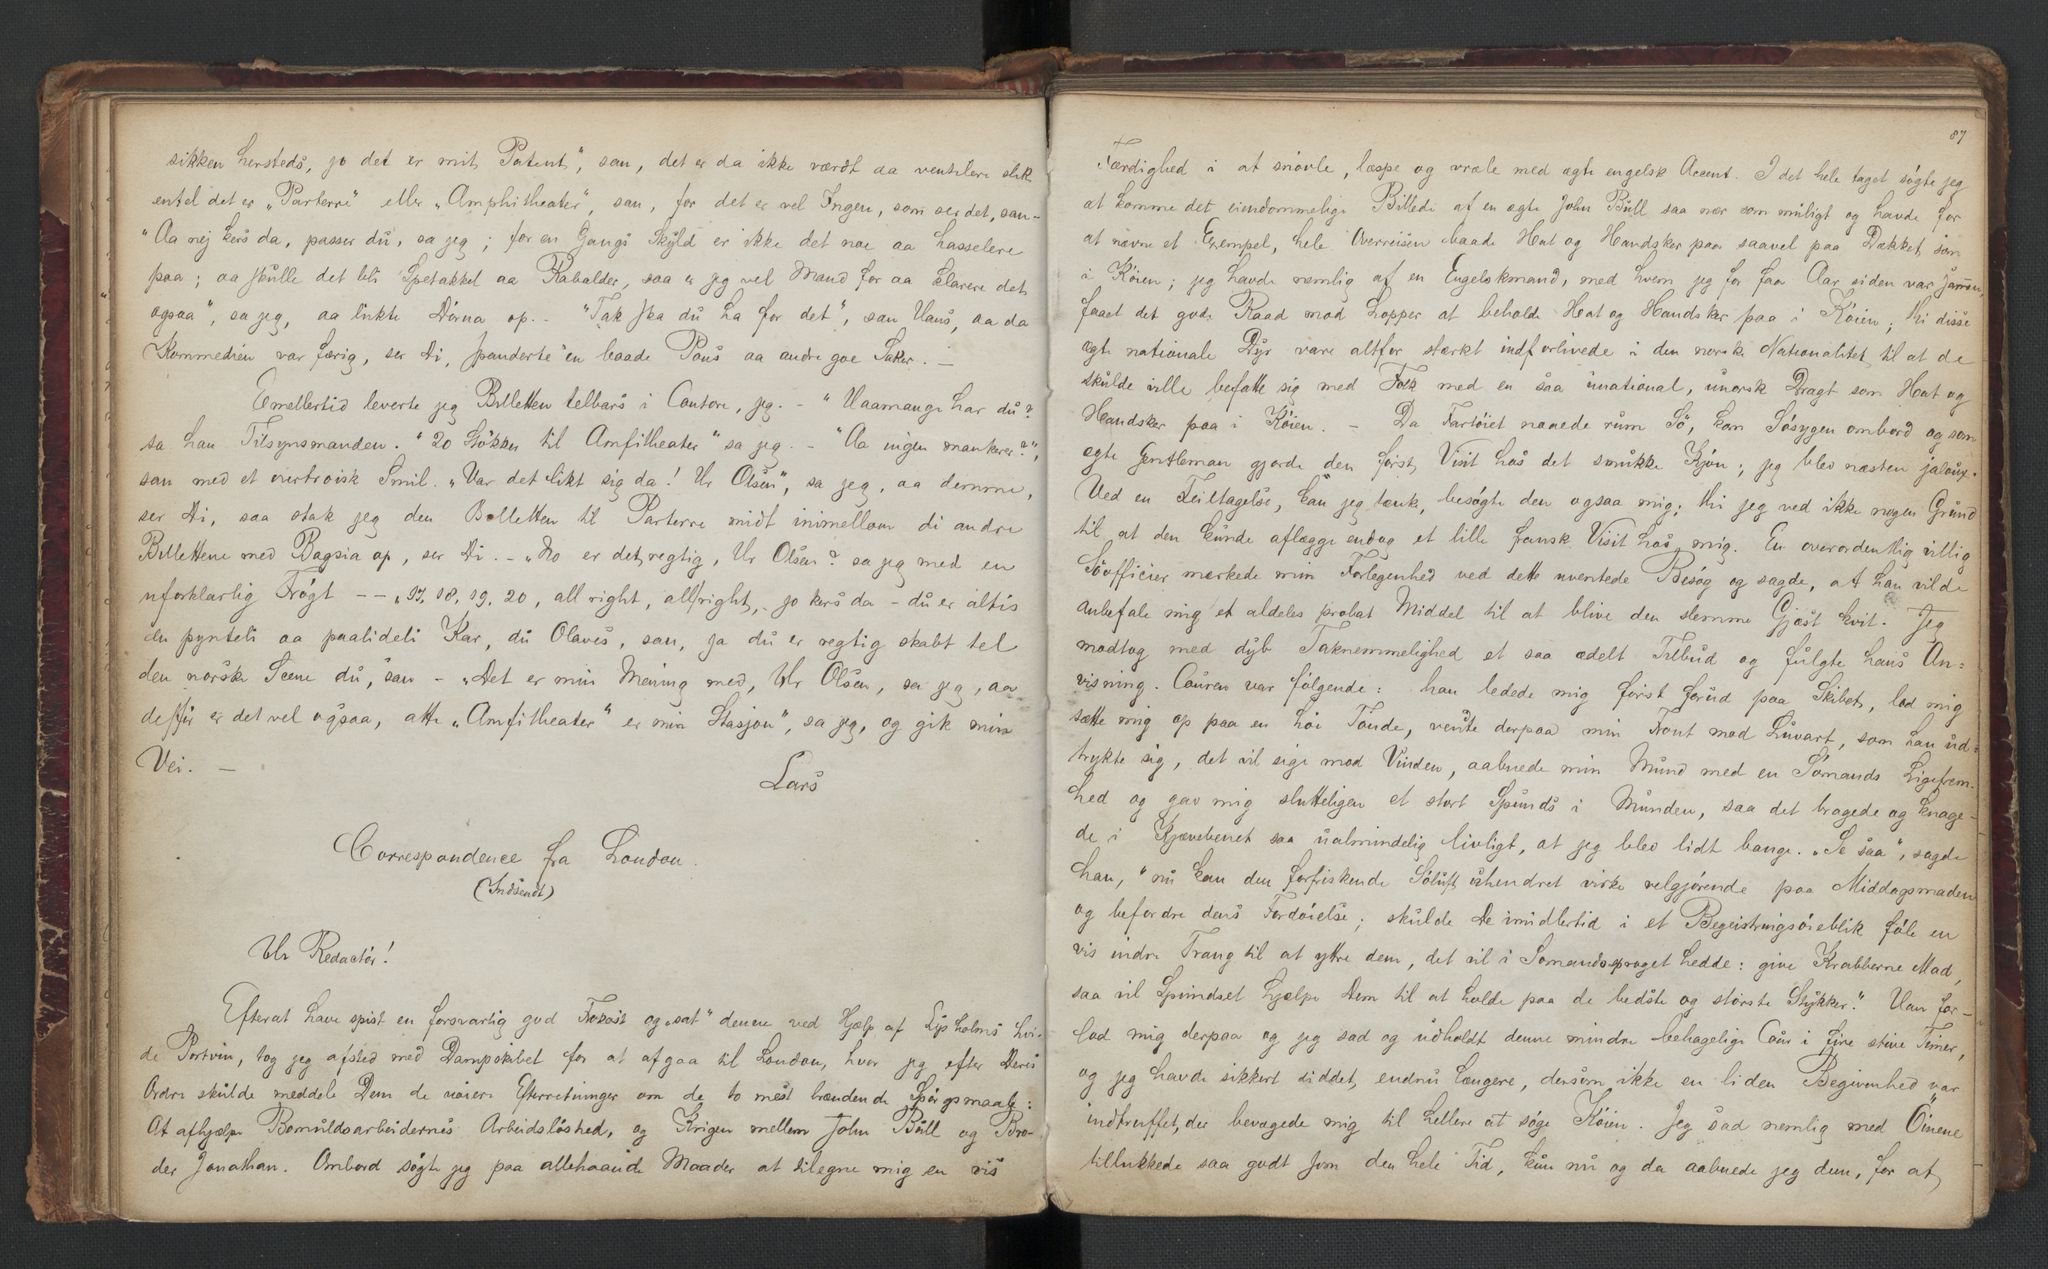 sikken hersteds, jo det er mit Patent", san, det er da ikke værdt aa ventilere slik
entel det er „Parterre" eller „Amphitheater", san, for det er vel Ingen, som ser det, san –
"Aa nej kers da, passer du, sa jeg; for en Gangs Skyld er ikke det noe aa hasselere
paa; aa skulle det bli Spetakkel aa Rabalder, saa er jeg vel Mand for aa klarere det
ogsaa", sa jeg, aa lukte Dørna op. – "Tak ska du ha for det", san Hans, aa da
Kommedien var færig, ser Di, spanderte 'en baade Pons aa andre goe Saker. —
Emellertid leverte jeg Billetten telbars i Contore, jeg. – "Haamange har du?"
sa han Tilsynsmanden. "20 Støkker til Amfitheater" sa jeg. – "Aa ingen mankerer?",
san med et overtroisk Smil. „Var det likt sig da! Hr Olsen", sa jeg, aa dermme,
ser Di, saa stak jeg den Billetten til Parterre midt inimellom di andre
Billettene med Bagsia op, ser Di. – „No er det regtig, Hr Olsen? sa jeg med en
uforklarlig Frøgt – – „17, 18, 19, 20, all right, all right, – jo kers da – du er altis
en pynteli aa paalideli Kar, du Olaves, san, ja du er regtig skabt tel
den norske Scene du, san – „Det er min Mening med, Hr Olsen, sa jeg, aa
desfür er det vel ogsaa, atte „Amfitheater" er min Stasjon", sa jeg, og gik min
Vei. —
Lars
Correspondence fra London.
(Indsendt)
Hr Redactør!
Efterat have spist en forsvarlig god Frokost og „sat" denne ved Hjælp af Lysholms hvi-
de Portvin, tog jeg afsted med Dampskibet for at afgaa til London, hvor jeg efter Deres
Ordre skulde meddele Dem de nøiere Efterretninger om de to mest brændende Spørgsmaale:
At afhjælpe Bomuldsarbeidernes Arbeidsløshed, og Krigen mellem John Bull og Bro-
der Jonathan. Ombord søgte jeg paa allehaande Maader at tilegne mig en vis
87
Færdighed i at snøvle, læspe og vræle med ægte engelsk Accent. I det hele taget søgte jeg
at komme det eiendommelige Billede af en ægte John Bull saa nær som muligt og havde for
at nævne et Exempel, hele Overreisen baade Hat og Handsker paa saavel paa Dækket som
i Køien; jeg havde nemlig af en Engelskmand, med hvem jeg for faa Aar siden var sammen,
faaet det gode Raad mod Lopper at beholde Hat og Handsker paa i Køien; thi disse
ægte nationale Dyr vare altfor stærkt indforlivede i den norske Nationalitet til at de
skulde ville befatte sig med Folk med en saa unational, unorsk Dragt som Hat og
Handsker paa i Køien. – Da Fartøiet naaede rum Sø, kom Søsygen ombord og som
ægte Gentleman gjorde den først Visit hos det smukke Kjøn; jeg blev næsten jaloux.
Ved en Feiltagelse, kan jeg tænke, besøgte den ogsaa mig; thi jeg ved ikke nogen Grund
til at den kunde aflægge endog et lille fransk Visit hos mig. En overordentlig villig
Søofficier mærkede min Forlegenhed ved dette uventede Besøg og sagde, at han vilde
anbefale mig et aldeles probat Middel til at blive den slemme Gjæst kvit. Jeg
modtog med dyb Taknemmelighed et saa ædelt Tilbud og fulgte hans An=
visning. Couren var følgende: han ledede mig først forud paa Skibet, lod mig
sætte mig op paa en høi Tønde, vendte derpaa min Front mod Luvart, som han ud=
trykte sig, det vil sige mod Vinden, aabnede min Mund med en Sømands Ligefrem-
hed og gav mig sluttelig et stort Spunds i Munden, saa det bragede og knage-
de i Kjævebenet saa ualmindelig livligt, at jeg blev lidt bange. „Se saa", sagde
han, "nu kan den forfriskende Søluft uhindret virke velgjørende paa Middagsmaden
og befordre dens Fordøielse; skulde De imidlertid i et Begeistringsøieblik føle en
vis indre Trang til at yttre dem, det vil i Sømandssproget hedde: give Krabberne Mad,
saa vil Spundset hjælpe Dem til at holde paa de bedste og største Stykker." Han for-
lod mig derpaa og jeg sad og udholdt denne mindre behagelige Cour i fire stive Timer,
og jeg havde sikkert siddet endnu længere, dersom ikke en liden Begivenhed var
indtruffet, der bevægede mig til hellere at søge Køien. Jeg sad nemlig med Øinene
tillukkede saa godt som den hele Tid, kun nu og da aabnede jeg dem, for at